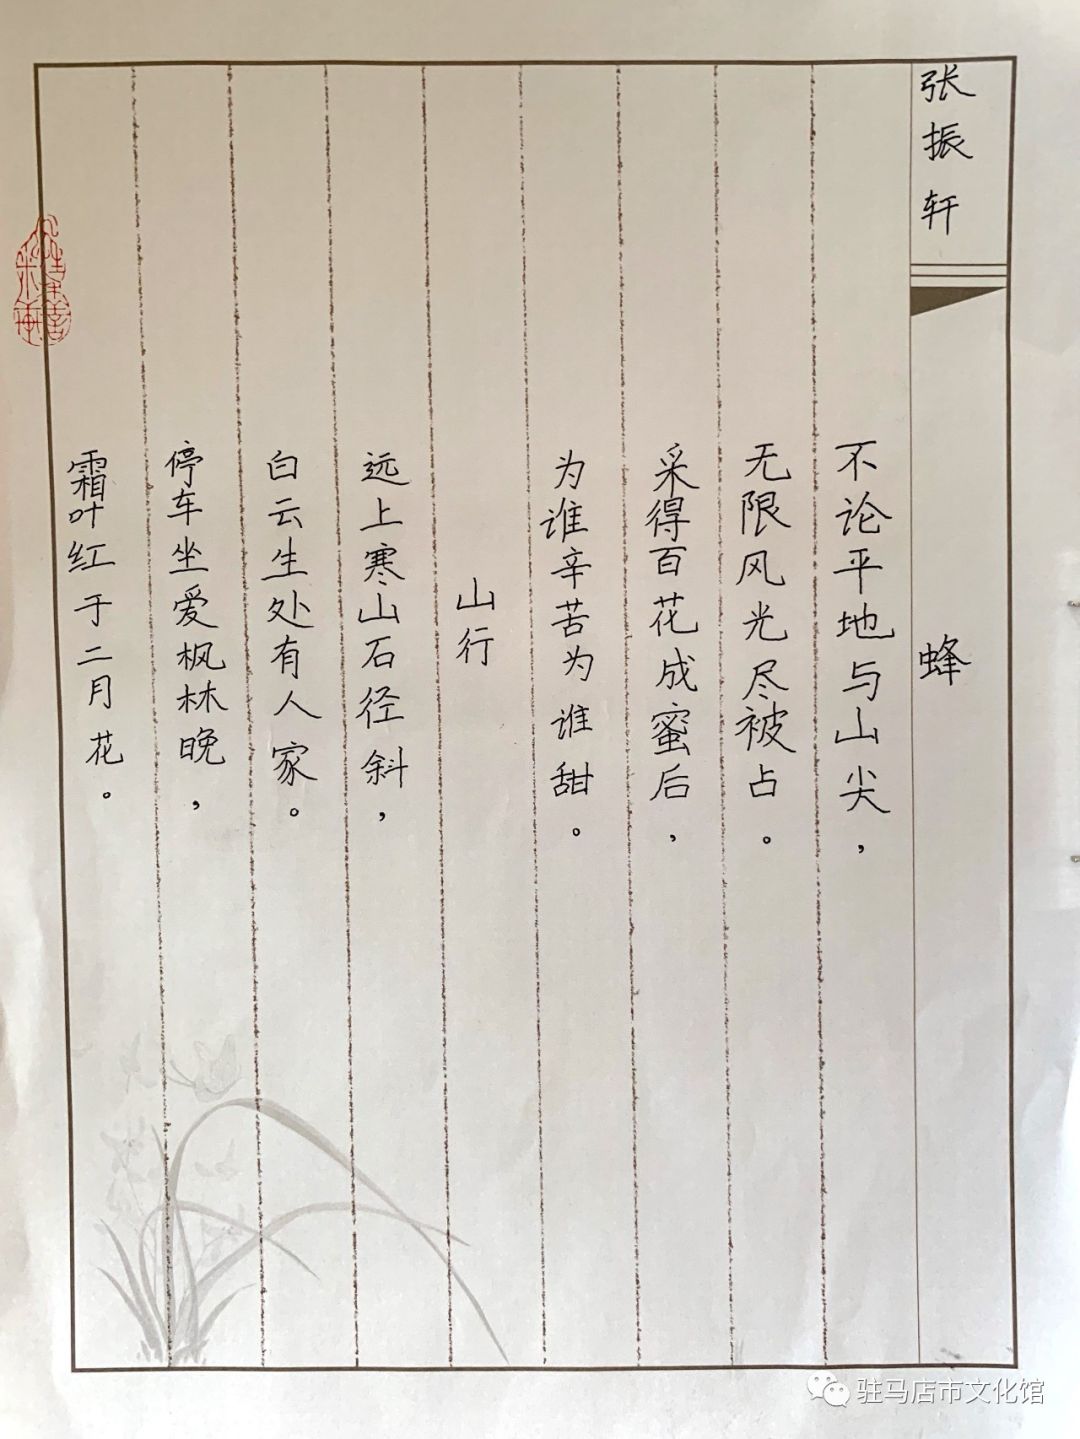 张振轩
蜂
不论平地与山尖，
无限风光尽被占。
采得百花成蜜后，
为谁辛苦为谁甜。
山行
远上寒山石径斜，
白云生处有人家。
停车坐爱枫林晚，
霜叶红于二月花。
驻马店市文化馆